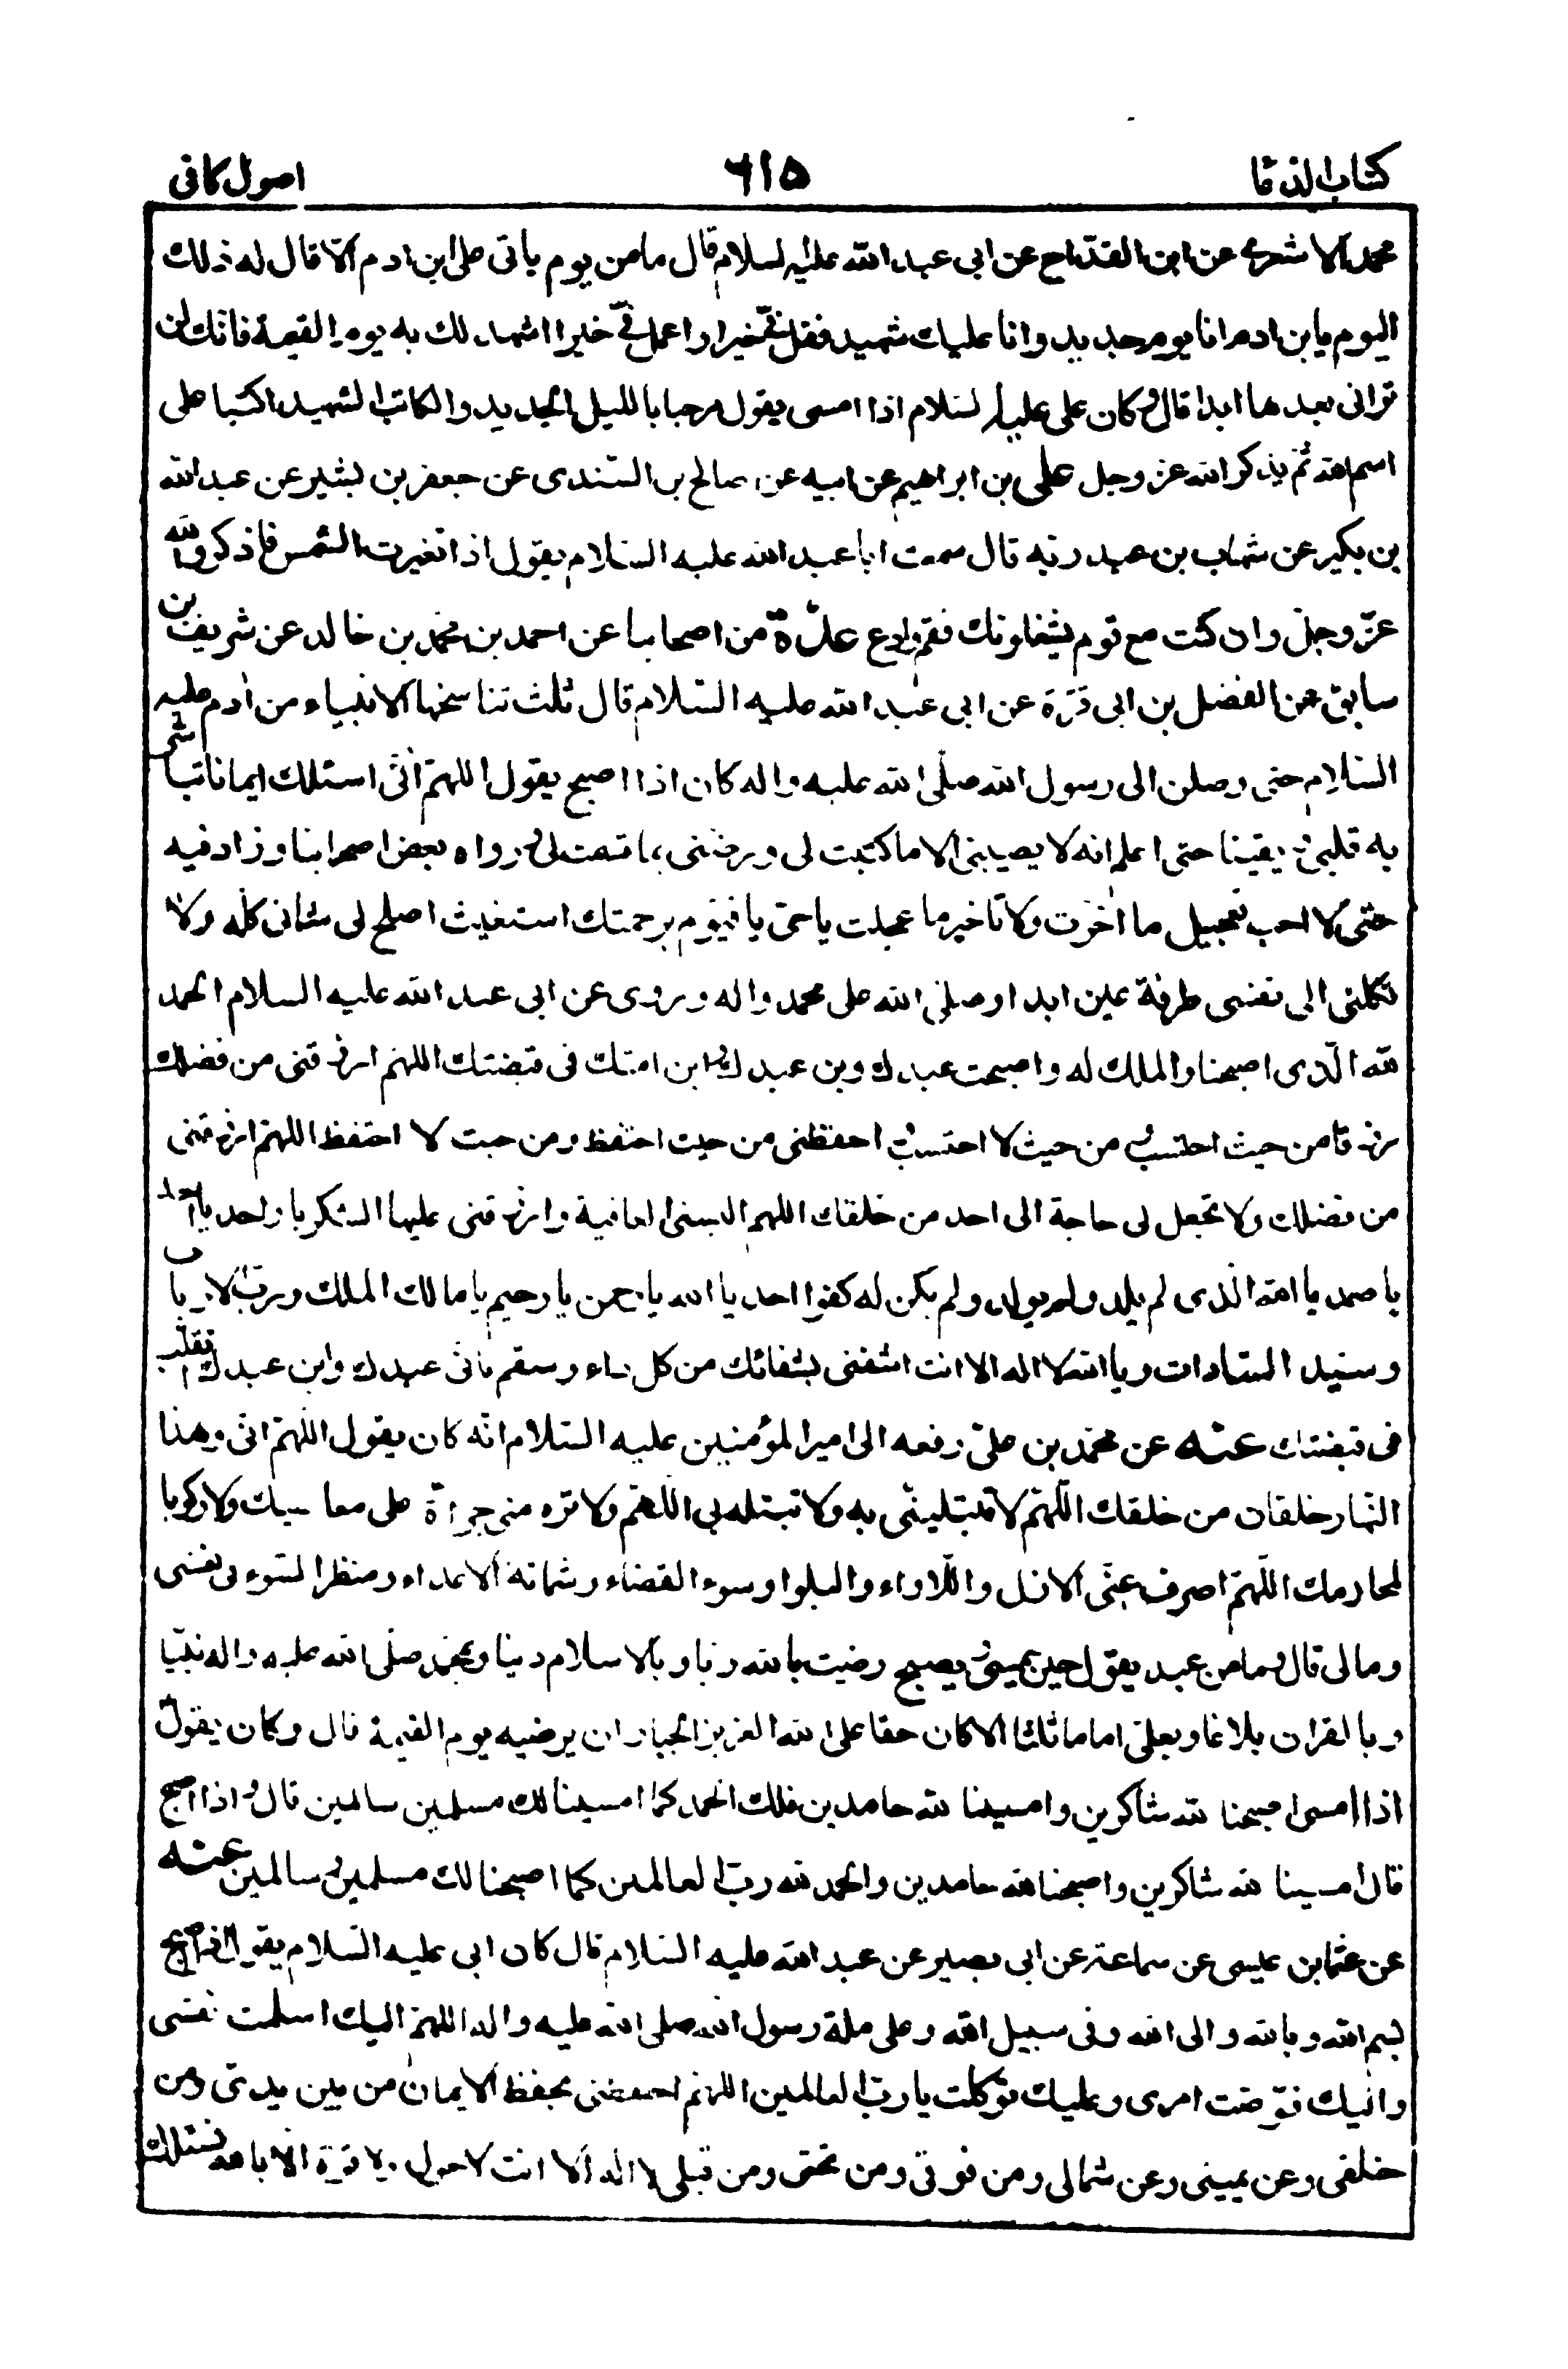 كتاب الدعا ٦١٥ اصول كافى
محمد الاشعرى عن ابن القداح عن ابى عبد الله عليه لسلام قال ما من يوم ياتى على ابن ادم الّا قال له ذلك
اليوم يا بن ادم انا يوم جديد وانا عليك شهيد فقل فىّ خيرا واعمل فىّ خيرا اشهد لك به يوم القيمة فانك لن
ترانى بعدها ابدا قال وكان على عليه لسلام اذا امسى يقول مرحبا بالليل الجديد والكاتب الشهيد اكتبا على
اسم الله ثم يذكر الله عز وجل على بن ابراهيم عن ابيه عن صالح بن السندى عن جعفر بن بشير عن عبد الله
بن بكير عن شهاب بن عبد ربه قال سمعت ابا عبد الله عليه السلام يقول اذا تغيرت الشمس فاذكر الله
عزّ وجلّ وان كنت مع قوم يشغلونك فقم وادع عدّة من اصحابنا عن احمد بن محمد بن خالد عن شريف بن
سابق عن الفضل بن ابى قرّة عن ابى عبد الله عليه السّلام قال ثلث تناسخها الانبياء من ادم عليه
السّلام حتى وصلن الى رسول الله صلّى الله عليه واله كان اذا اصبح يقول اللهمّ انّى اسئلك ايمانا تباشر
به قلبى ويقينا حتى اعلم انه لا يصيبنى الا ما كتبت لى ورضنى بما قسمت لى ورواه بعض اصحابنا وزاد فيه
حتّى لا احب تعجيل ما اخّرت ولا تاخير ما عجلت يا حىّ يا قيّوم برحمتك استغيث اصلح لى شانى كلّه ولا
تكلنى الى نفسى طرفة عين ابدا وصلّى الله على محمد واله وروى عن ابى عبد الله عليه السلام الحمد
لله الّذى اصبحنا والملك له واصبحت عبدك وبن عبدك وابن امتك فى قبضتك اللهمّ ارزقنى من فضلك
رزقا من حيث احتسب ومن حيث لا احتسب واحفظنى من حيث احتفظ ومن حيث لا احتفظ اللهمّ ارزقنى
من فضلك ولا تجعل لى حاجة الى احد من خلقك اللهم البسنى العافية وارزقنى عليها الشكر يا واحد يا احد
يا صمد يا الله الّذى لم يلد ولم يولد ولم يكن له كفوا احد يا الله يا رحمن يا رحيم يا مالك الملك وربّ الارباب
وسيد السّادات ويا الله لا اله الا انت اشفنى بشفائك من كل داء وسقم فانّى عبدك وابن عبدك اتقلّب
فى قبضتك عنه عن محمّد بن علىّ رفعه الى امير المؤمنين عليه السّلام انّه كان يقول اللّهمّ انّى وهذا
النّهار خلقان من خلقك اللّهمّ لا تبتلينّى به ولا تبتله بى اللّهمّ ولا تره منى جرأة على معاصيك ولا ركوبا
لمحارمك اللّهمّ اصرف عنّى الازل واللّاواء والبلوا وسوء القضاء وشماتة الاعداء ومنظر السّوء فى نفسى
ومالى قال وما من عبد يقول حين يمسى ويصبح رضيت بالله ربّا وبالاسلام دينا وبمحمّد صلّى الله عليه واله نبيّا
وبالقران بلاغا وبعلىّ اماما ثلثا الا كان حقا على الله العزيز الجبار ان يرضيه يوم القيمة قال وكان يقول
اذا امسى اصبحنا لله شاكرين وامسينا لله حامدين فلك الحمد كما امسينا لك مسلمين سالمين قال واذا اصبح
قال امسينا لله شاكرين واصبحنا لله حامدين والحمد لله ربّ العالمين كما اصبحنا لك مسلمين سالمين عنه
عن عثمان بن عيسى عن سماعة عن ابى بصير عن عبد الله عليه السّلام قال كان ابى عليه السّلام يقول اذا اصبح
بسم الله وبالله والى الله وفى سبيل الله وعلى ملة رسول الله صلى الله عليه واله اللهمّ اليك اسلمت نفسى
واليك فوّضت امرى وعليك توكّلت يا ربّ العالمين اللهمّ احفظنى بحفظ الايمان من بين يدىّ ومن
خلفى وعن يمينى وعن شمالى ومن فوقى ومن تحتى ومن قبلى لا اله الا انت لا حول ولا قوّة الّا بالله نسئلك